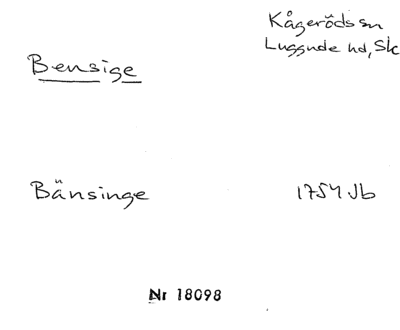 Kågeröds sn
Luggude hd, Sk
Bensige
Bänsinge 1754 Jb
Nr 18098